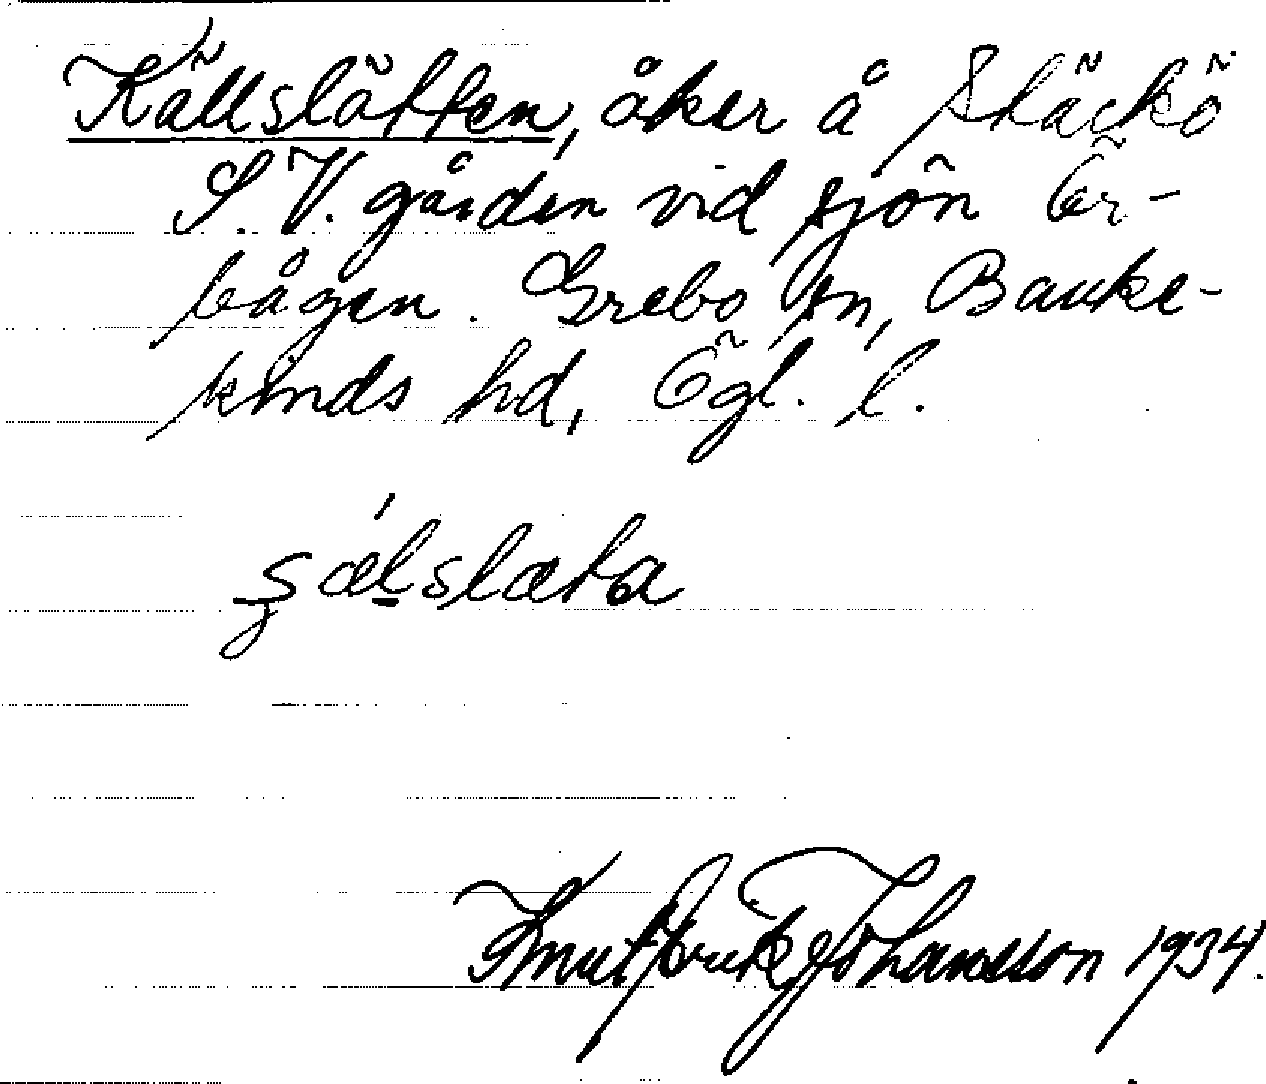 Källslätten, åker å Släckö
S. V. gården vid sjön Ör-
bågen. Grebo sn, Banke-
kinds hd, Ögl. l.
Knut Johansson 1934.